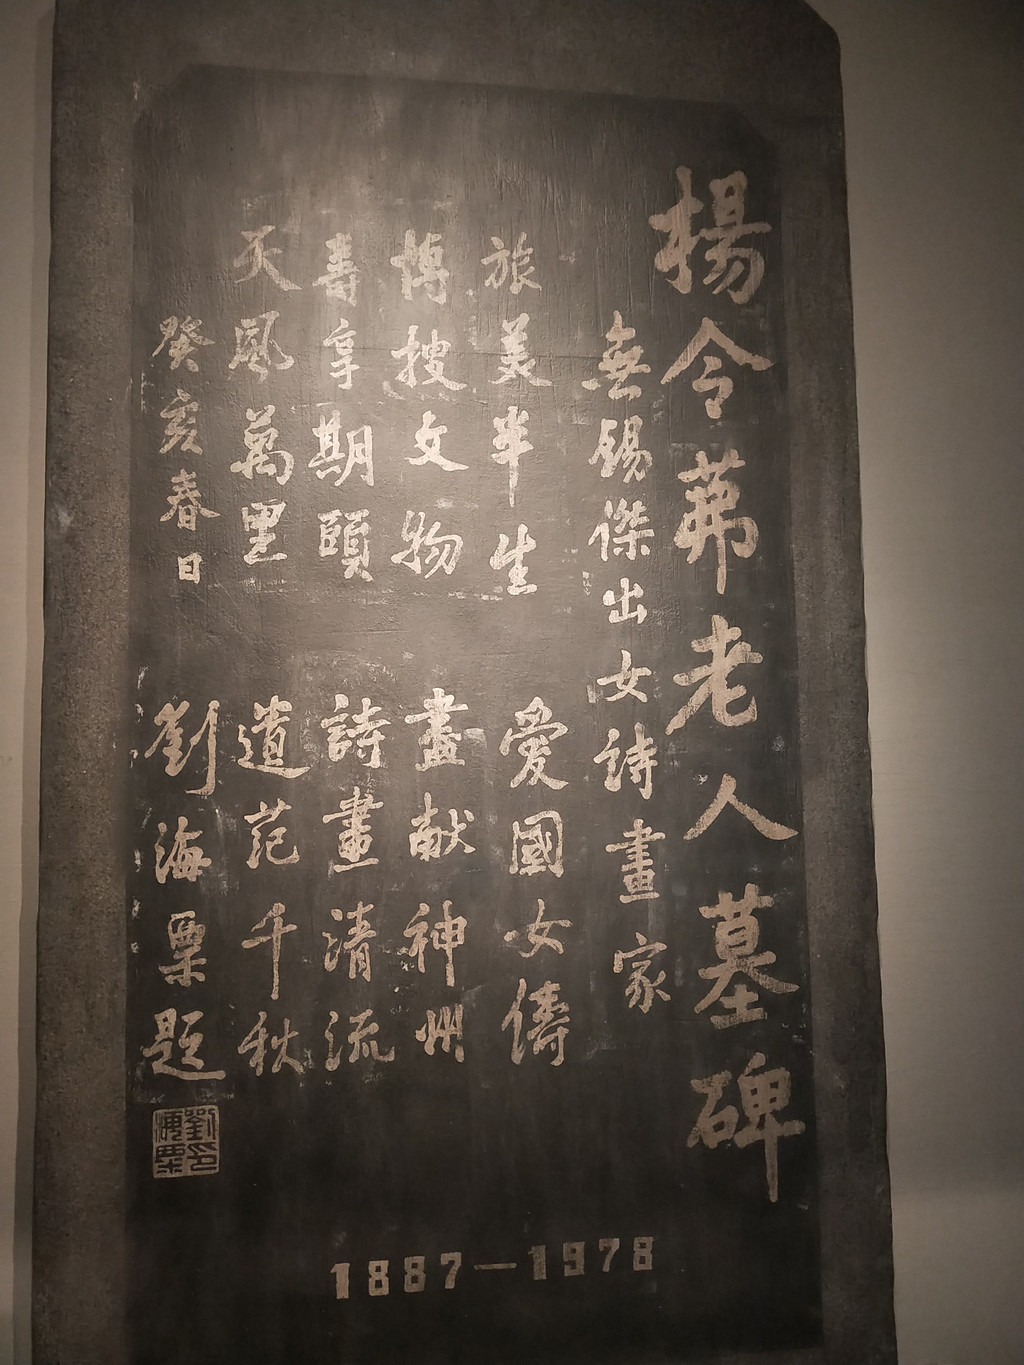 楊令茀老人墓碑
無錫傑出女詩畫家
旅美半生 愛國女儔
博搜文物 盡献神州
壽享期頤 詩畫清流
天風萬里 遺范千秋
癸亥春日 劉海粟題
劉海粟印
1887—1978